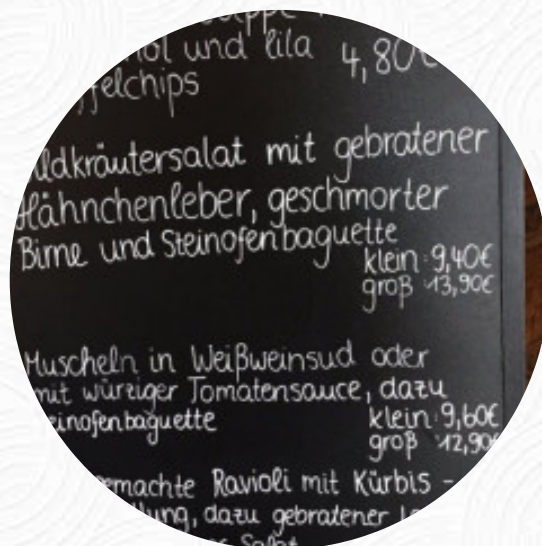 und lila 4,80€
felchips
ldkräutersalat mit gebratener
Hähnchenleber, geschmorter
Birne und Steinofenbaguette
klein: 9,40€
groß: 13,90€
Muscheln in Weißweinsud oder
mit würziger Tomatensauce, dazu
einofenbaguette
klein: 9,60€
groß: 12,90€
emachte Ravioli mit Kürbis -
lung, dazu gebratener
Salat